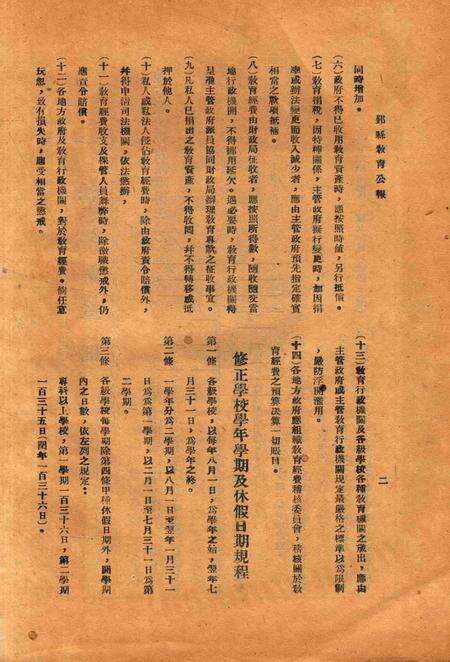 鄞縣教育公報
二
同時增加。
(六)政府不得已收用教育資產時,應按照時值,另行抵償。
(七)教育捐稅,因特種關係,主管政府擬行變更時,如因捐
率或辦法變更而收入減少者,應由主管政府預先指定確實
相當之款項抵補。
(八)教育經費由財政局征收者,應按照所得數,隨收隨交當
地行政機關,不得挪用延欠。遇必要時,教育行政機關得
呈准主管政府派員會同財政局辦理教育專款之征收事宜。
(九)凡私人已捐出之教育資產,不得收回,并不得轉移或抵
押於他人。
(十)私人或私法人侵佔教育經費時,除由政府責令賠償外,
幷得申請司法機關,依法懲辦,
(十一)教育經費收支及保管人員舞弊時,除撤職懲戒外,仍
應責令賠償。
(十二)各地方政府及教育行政機關,對於教育經費。倘任意
玩忽,致有損失時,應受相當之懲戒。
(十三)教育行政機關及各級學校各種教育機關之歲出,應由
主管政府或主管教育行政機關規定最嚴格之標準以爲限制
,嚴防浮開濫用。
(十四)各地方政府應組織教育經費稽核委員會,稽核關於教
育經費之預算決算一切賬目。
修正學校學年學期及休假日期規程
第一條 各級學校,以每年八月一日,爲學年之始,翌年七
月三十一日,爲學年之終。
第二條 一學年分爲二學期,以八月一日至翌年一月三十一
日爲爲第一學期,以二月一日至七月三十一日爲第
二學期。
第三條 各級學校每學期除第四條甲種休假日期外,開學期
內之日數,依左列之規定:
專科以上學校,第一學期一百三十六日,第二學期
一百三十五日(閏年一百三十六日)。